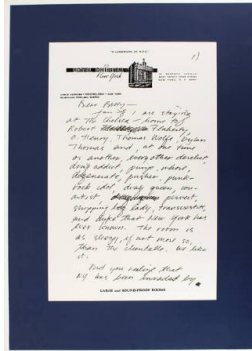 1)
Hotel Chelsea
New York
Dear Barry —
Jan & I are staying
at The Chelsea — home of
Robert Flaherty,
O. Henry, Thomas Wolfe, Dylan
Thomas and, at one time
or another, every other derelict,
drug addict, pimp, whore,
degenerate, pusher, punk-
rock idol, drag queen, con-
artist, pervert,
shopping bag lady, transvestite,
and dupe that New York has
ever known. The room is
as sleazy, if not more so,
than the clientele. We like
it.
And you realize that
NY has been invaded by
LARGE and SOUND-PROOF ROOMS